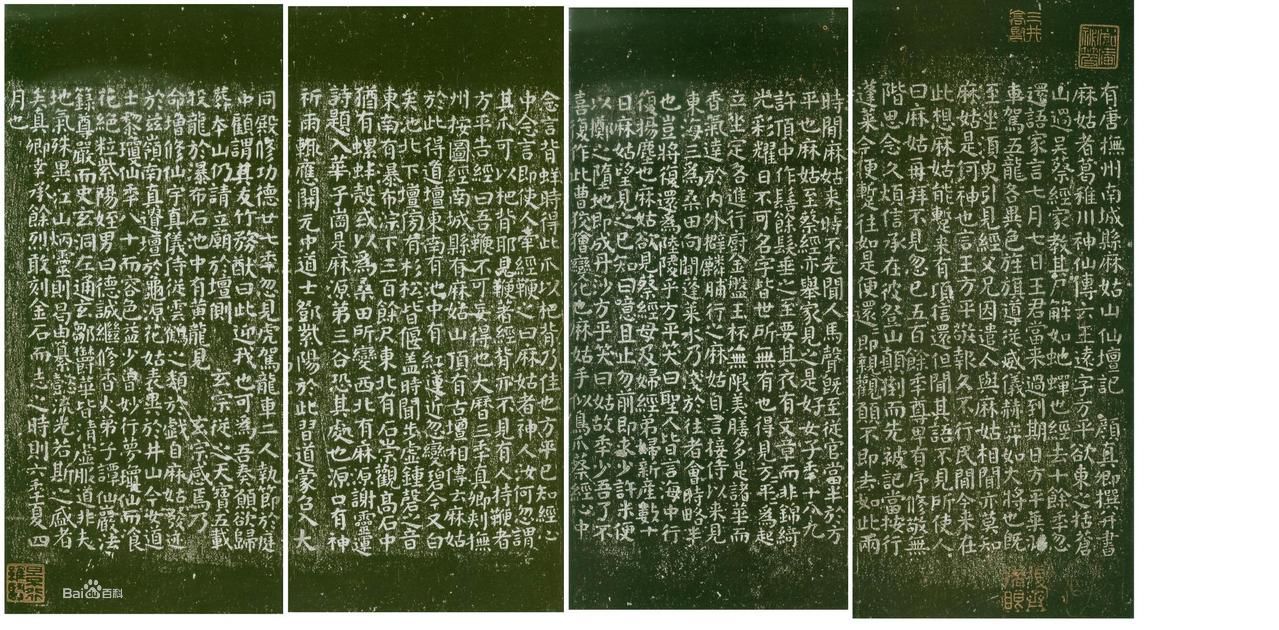 有唐撫州南城縣麻姑山仙壇記 顏真卿撰并書
麻姑者葛稚川神仙傳云王遠字方平欲東之括蒼
山過吳蔡經家教其尸解如蛇蟬也經去十餘年忽
還語家言七月七日王君當來過到期日方平乘羽
車駕五龍各異色旌旗導從威儀赫弈如大將也旣
至坐須臾引見經父兄因遣人與麻姑相聞亦莫知
麻姑是何神也言王方平敬報久不行民間今來在
此想麻姑能暫來有頃信還但聞其語不見所使人
曰麻姑再拜不見忽已五百餘年尊卑有序修敬無
階思念久煩信承在彼登山顛倒而先被記當按行
蓬萊今便暫往如是便還還即親觀願不即去如此兩
時間麻姑來時不先聞人馬聲旣至從官當半於方
平也麻姑至蔡經亦舉家見之是好女子年十八九
許頂中作髻餘髮垂之至要其衣有文章而非錦綺
光彩耀日不可名字皆世所無有也得見方平為起
立坐定各進行廚金盤玉杯無限美膳多是諸華而
香氣達於內外擗麟脯行之麻姑自言接侍以來見
東海三為桑田向間蓬萊水乃淺於往者會時略半
也豈將復還為陸陵乎方平笑曰聖人皆言海中行
復揚塵也麻姑欲見蔡經母及婦經弟婦新產數十
日麻姑望見之已知曰噫且止勿前即求少許米便
以擲之墮地即成丹沙方平笑曰姑故年少吾了不
喜復作此曹狡獪變化也麻姑手似鳥爪蔡經心中
念言背蛘時得此爪以杷背乃佳也方平已知經心
中念言即使人牽經鞭之曰麻姑者神人汝何忽謂
其爪可以杷背耶見鞭著經背亦不見有人持鞭者
方平告經曰吾鞭不可妄得也大曆三年真卿刺撫
州按圖經南城縣有麻姑山頂有古壇相傳云麻姑
於此得道壇東南有池中有紅蓮近忽變碧今又白
矣池北下壇傍有杉松皆偃蓋時聞步虛鍾磬之音
東南有瀑布淙下三百餘尺東北有石崇觀高石中
猶有螺蚌殼或以為桑田所變西北有麻源謝靈運
詩題入華子崗是麻源第三谷恐其處也源口有神
祈雨輒應開元中道士鄧紫陽於此習道蒙召入大
同殿修功德廿七年忽見虎駕龍車二人執節於庭
中顧謂其友竹務猷曰此迎我也可為吾奏願欲歸
葬本山仍請立廟於壇側 玄宗從之天寶五載
投龍於瀑布石池中有黃龍見 玄宗感焉乃
命增修仙宇真儀侍從雲鶴之類於戲自麻姑發迹
於茲嶺南真遺壇於龜源花姑表異於井山今女道
士黎瓊仙年八十而容色益少曾妙行夢瓊仙而餐
花絕粒紫陽姪男曰德誠繼修香火弟子譚仙巖法
籙尊嚴而史玄洞左通玄鄒鬱華皆清虛服道非夫
地氣殊異江山炳靈則曷由纂懿流光若斯之盛者
矣真卿幸承餘烈敢刻金石而志之時則六年夏四
月也
Bai百科